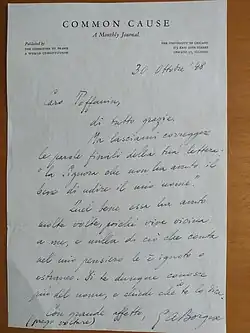 COMMON CAUSE
A Monthly Journal
Published by
THE COMMITTEE TO FRAME
A WORLD CONSTITUTION
THE UNIVERSITY OF CHICAGO
CHICAGO 37, ILLINOIS
30 Ottobre '48
Caro Toffanin,
di tutto grazie.
Ma lasciami correggere
le parole finali della tua lettera:
"la Signora che non ha avuto il
bene di udire il mio nome."
Quel bene essa ha avuto
molte volte, poiché vive vicina
a me, e nulla di ciò che conta
nel mio pensiero le è ignoto o
estraneo. Di te dunque conosce
più del nome, e chiede che te lo dica.
Con grande affetto, G. A. Borgese
(prego voltare)